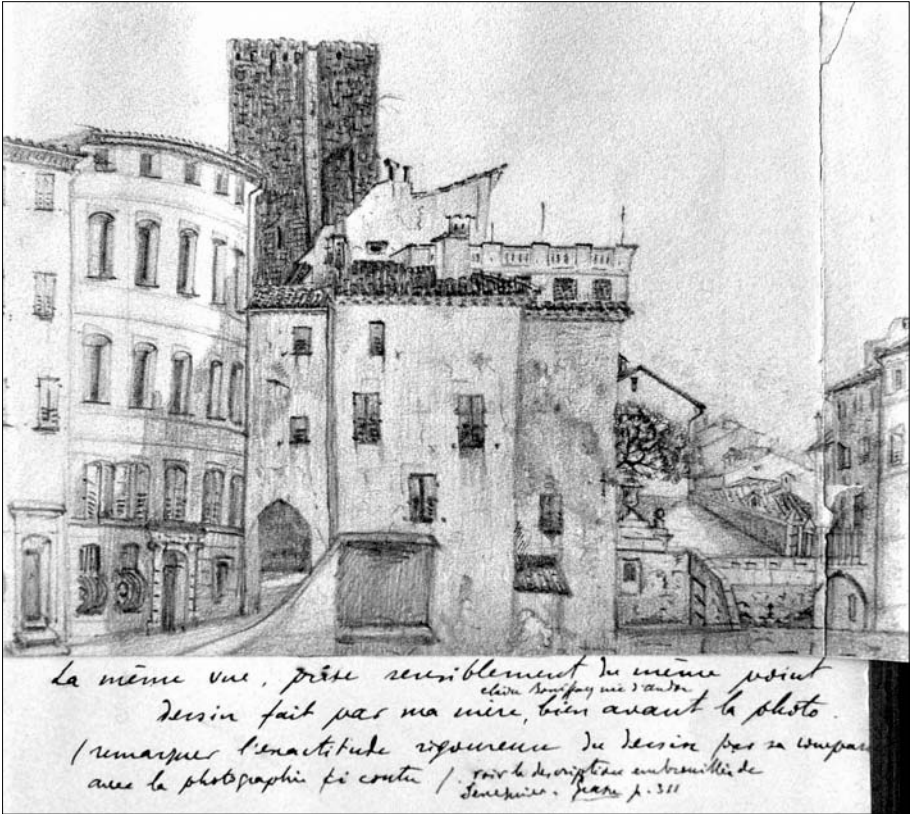 La même vue, prise sensiblement du même point
dessin fait par ma mère, bien avant la photo.
(remarquer l'exactitude rigoureuse du dessin par sa compar
avec la photographie ci contre). voir la description embrouillée de
p. 311